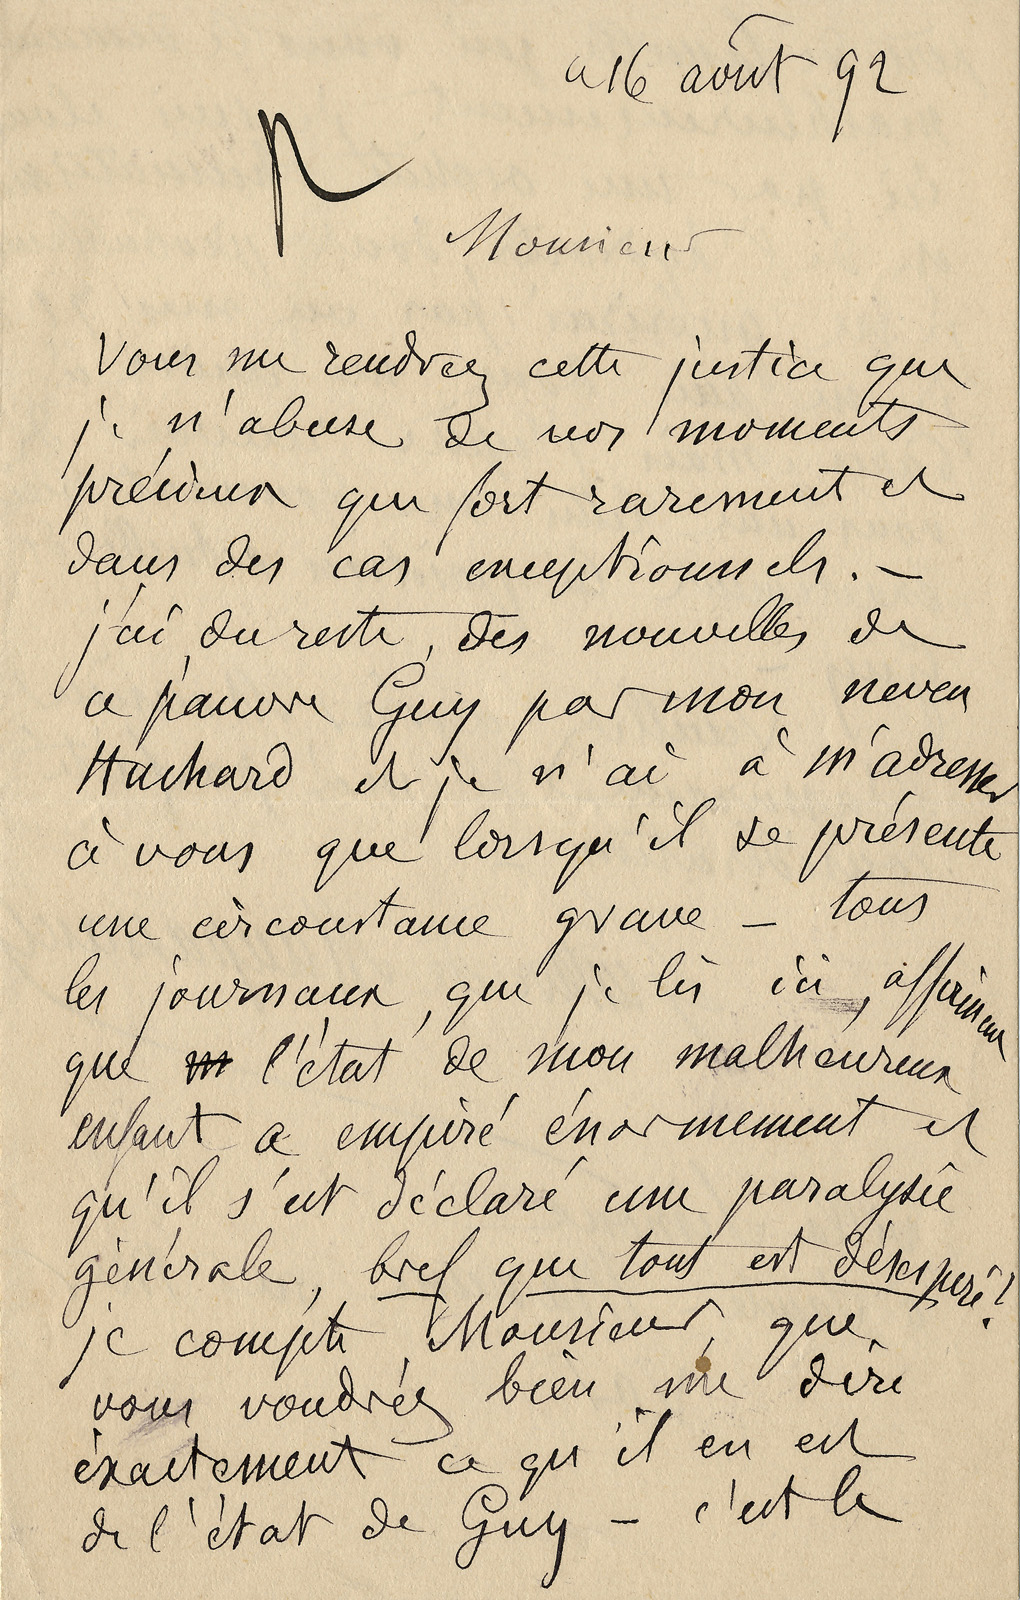 a 16 août 92
R
Monsieur
Vous me rendrez cette justice que
je n'abuse de vos moments
précieux que fort rarement et
dans des cas exceptionnels. —
j'ai, du reste, des nouvelles de
ce pauvre Guy par mon neveu
Huchard et je n'ai à m'adresser
à vous que lorsqu'il se présente
une circonstance grave — tous
les journaux, que je lis ici, affirment
que l'état de mon malheureux
enfant a empiré énormement et
qu'il s'est déclaré une paralysie
générale, bref que tout est désespéré!
je compte, Monsieur, que
vous voudrez bien me dire
éxactement ce qu'il en est
de l'état de Guy — c'est le